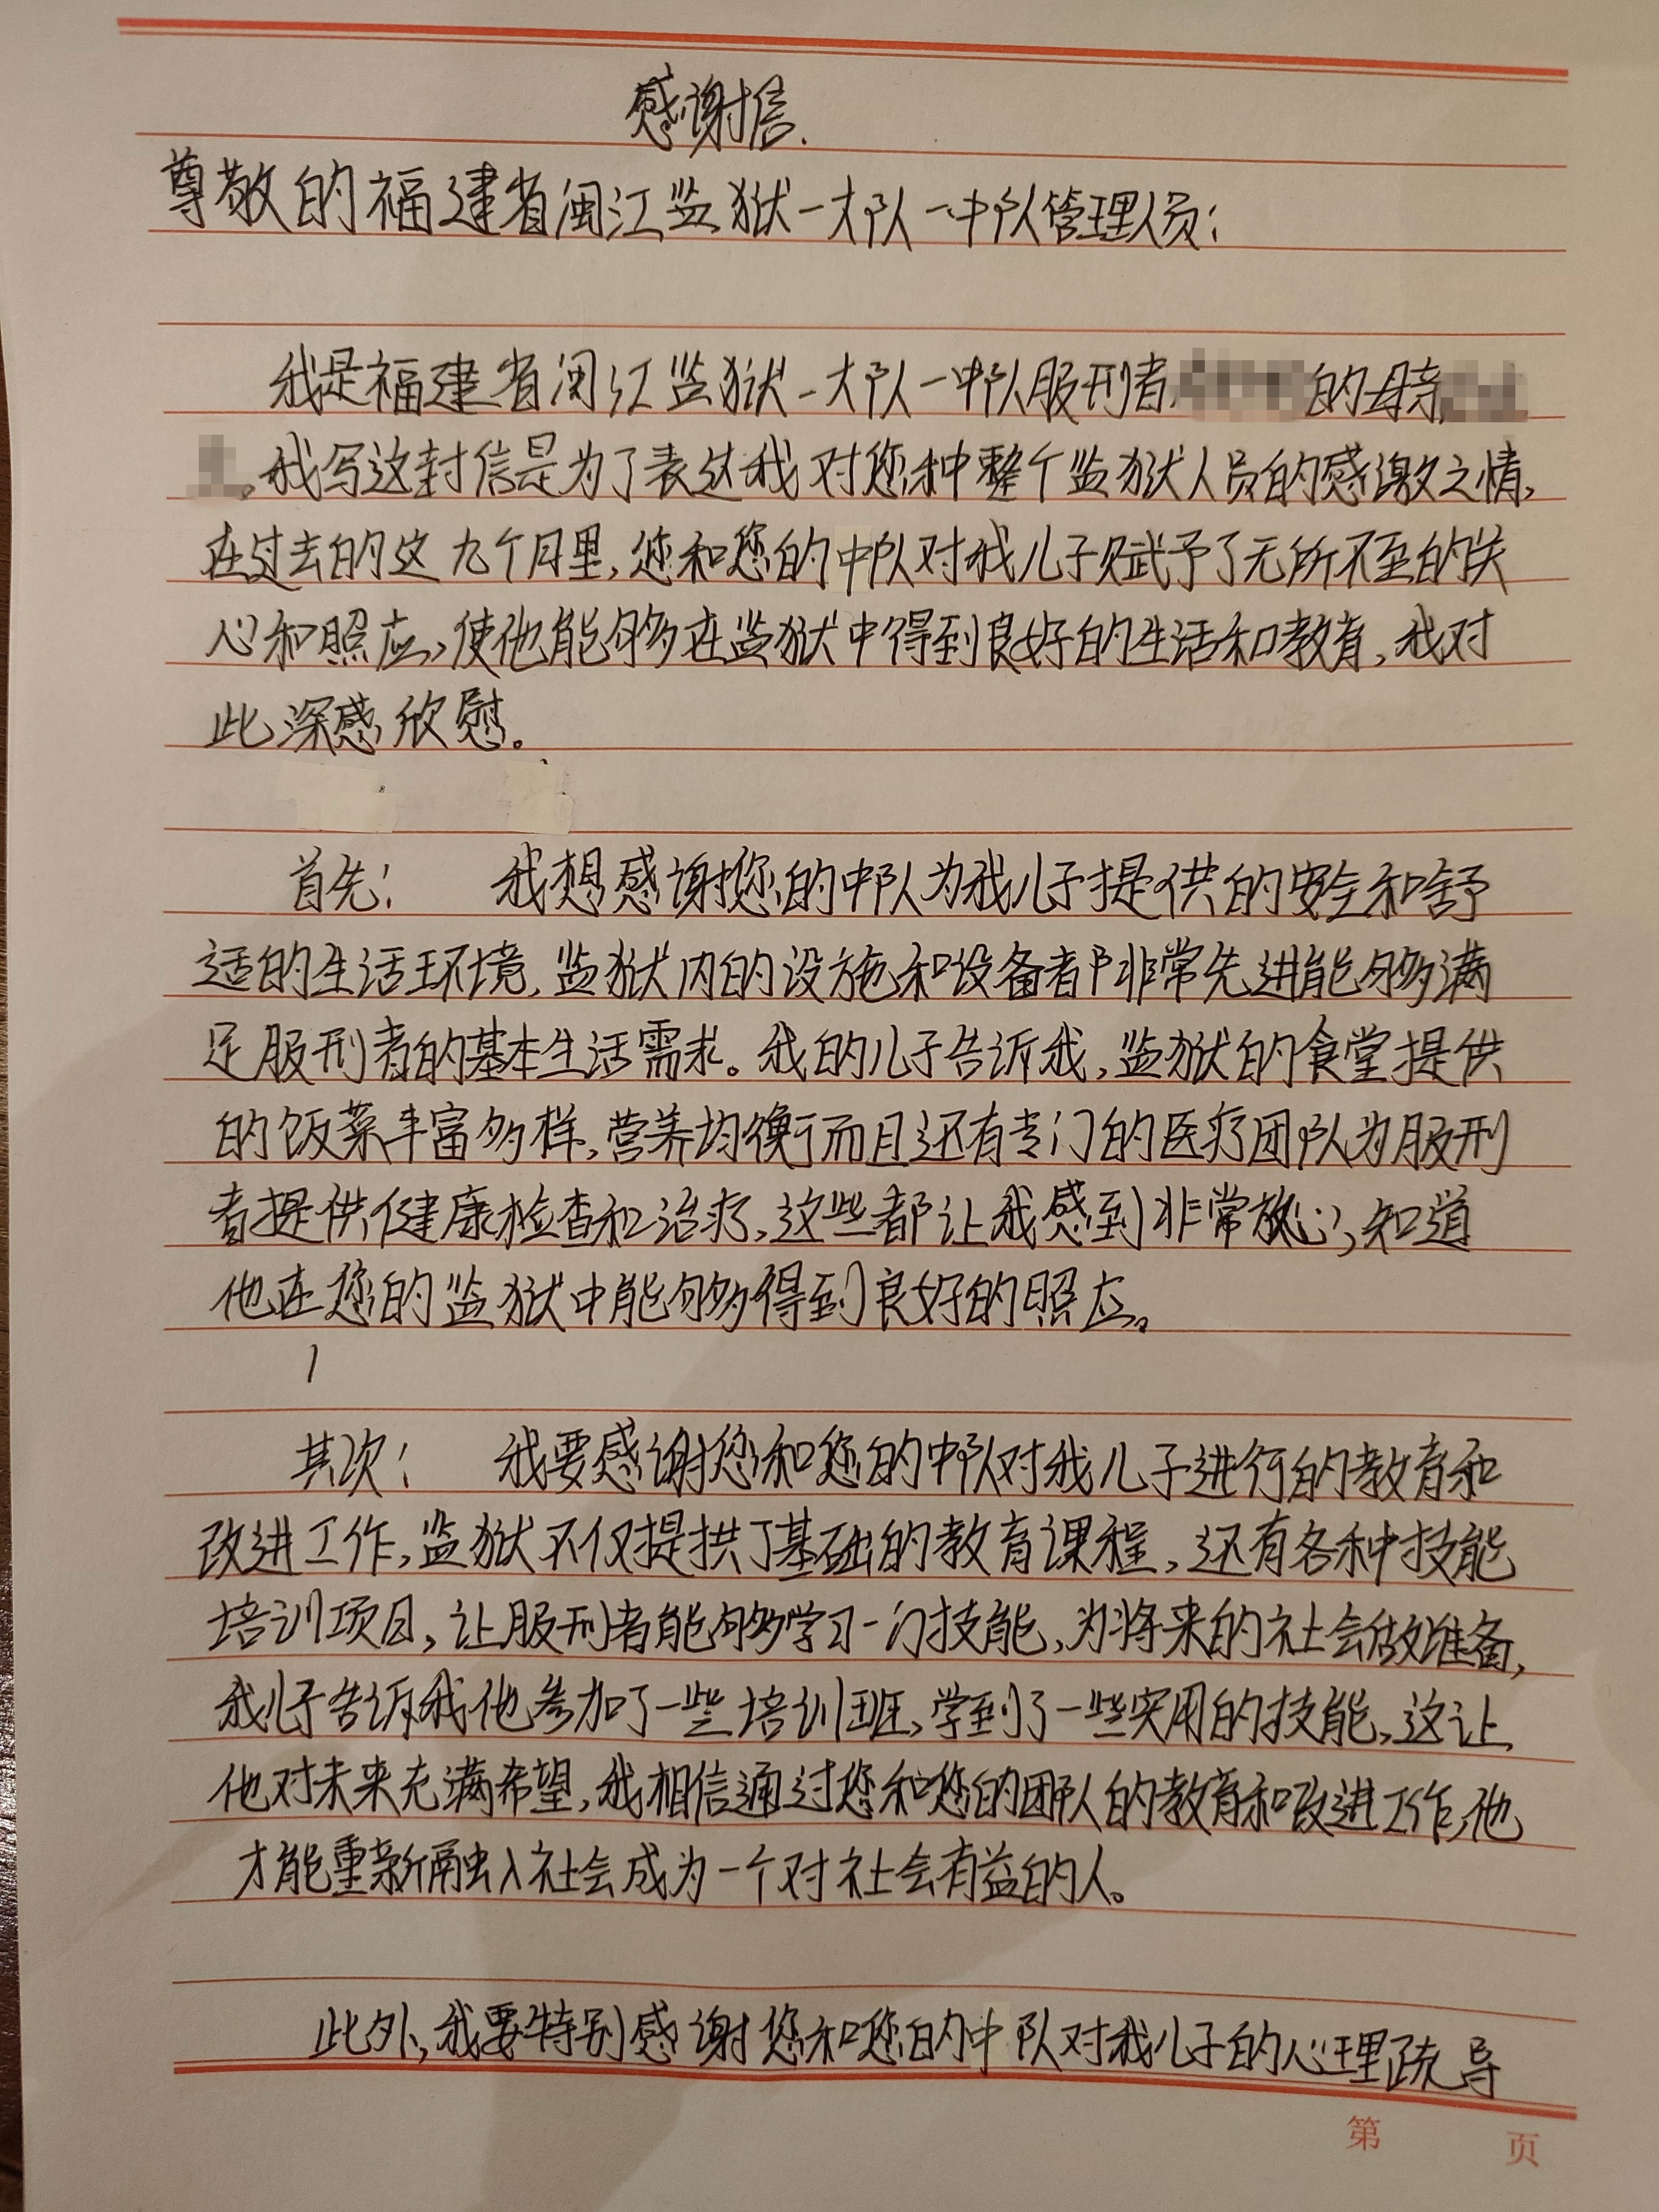 感谢信.
尊敬的福建省闽江监狱一大队一中队管理人员：
我是福建省闽江监狱一大队一中队服刑者的母亲
。我写这封信是为了表达我对您和整个监狱人员的感激之情,
在过去的这九个月里,您和您的中队对我儿子赋予了无所不至的关
心和照应,使他能够在监狱中得到良好的生活和教育,我对
此深感欣慰。
首先： 我想感谢您的中队为我儿子提供的安全和舒
适的生活环境,监狱内的设施和设备都非常先进能够满
足服刑者的基本生活需求。我的儿子告诉我,监狱的食堂提供
的饭菜丰富多样,营养均衡而且还有专门的医疗团队为服刑
者提供健康检查和治疗,这些都让我感到非常放心,知道
他在您的监狱中能够得到良好的照应。
其次： 我要感谢您和您的中队对我儿子进行的教育和
改进工作,监狱不仅提拱了基础的教育课程,还有各种技能
培训项目,让服刑者能够学习一门技能,为将来的社会做准备,
我儿子告诉我他参加了一些培训班,学到了一些实用的技能,这让
他对未来充满希望,我相信通过您和您的团队的教育和改进工作,他
才能重新融入社会成为一个对社会有益的人。
此外,我要特别感谢您和您的中队对我儿子的心理疏导
第 页